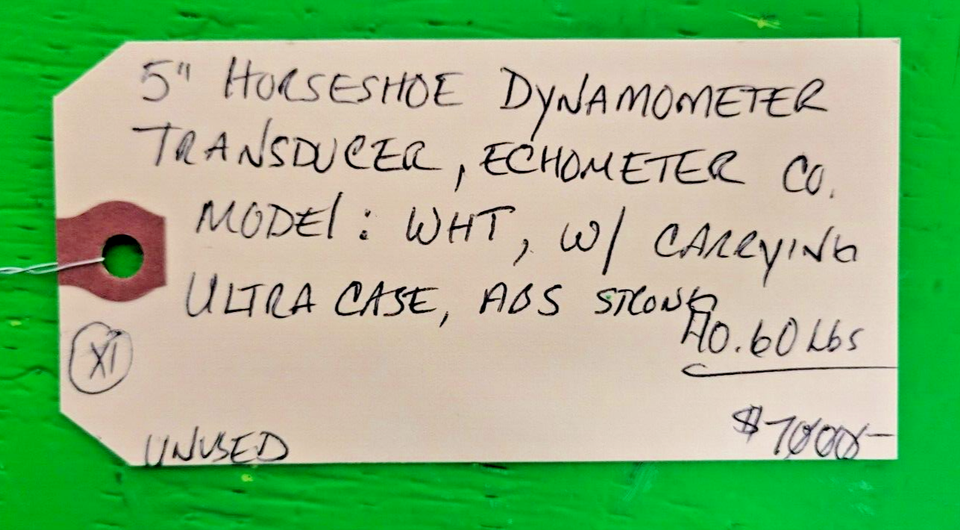 5" HORSESHOE DYNAMOMETER
TRANSDUCER, ECHOMETER CO.
MODEl: WHT, W/ CARRYING
ULTRA CASE, ABS STRONG
40.60 Lbs
X1
UNUSED
$7000-